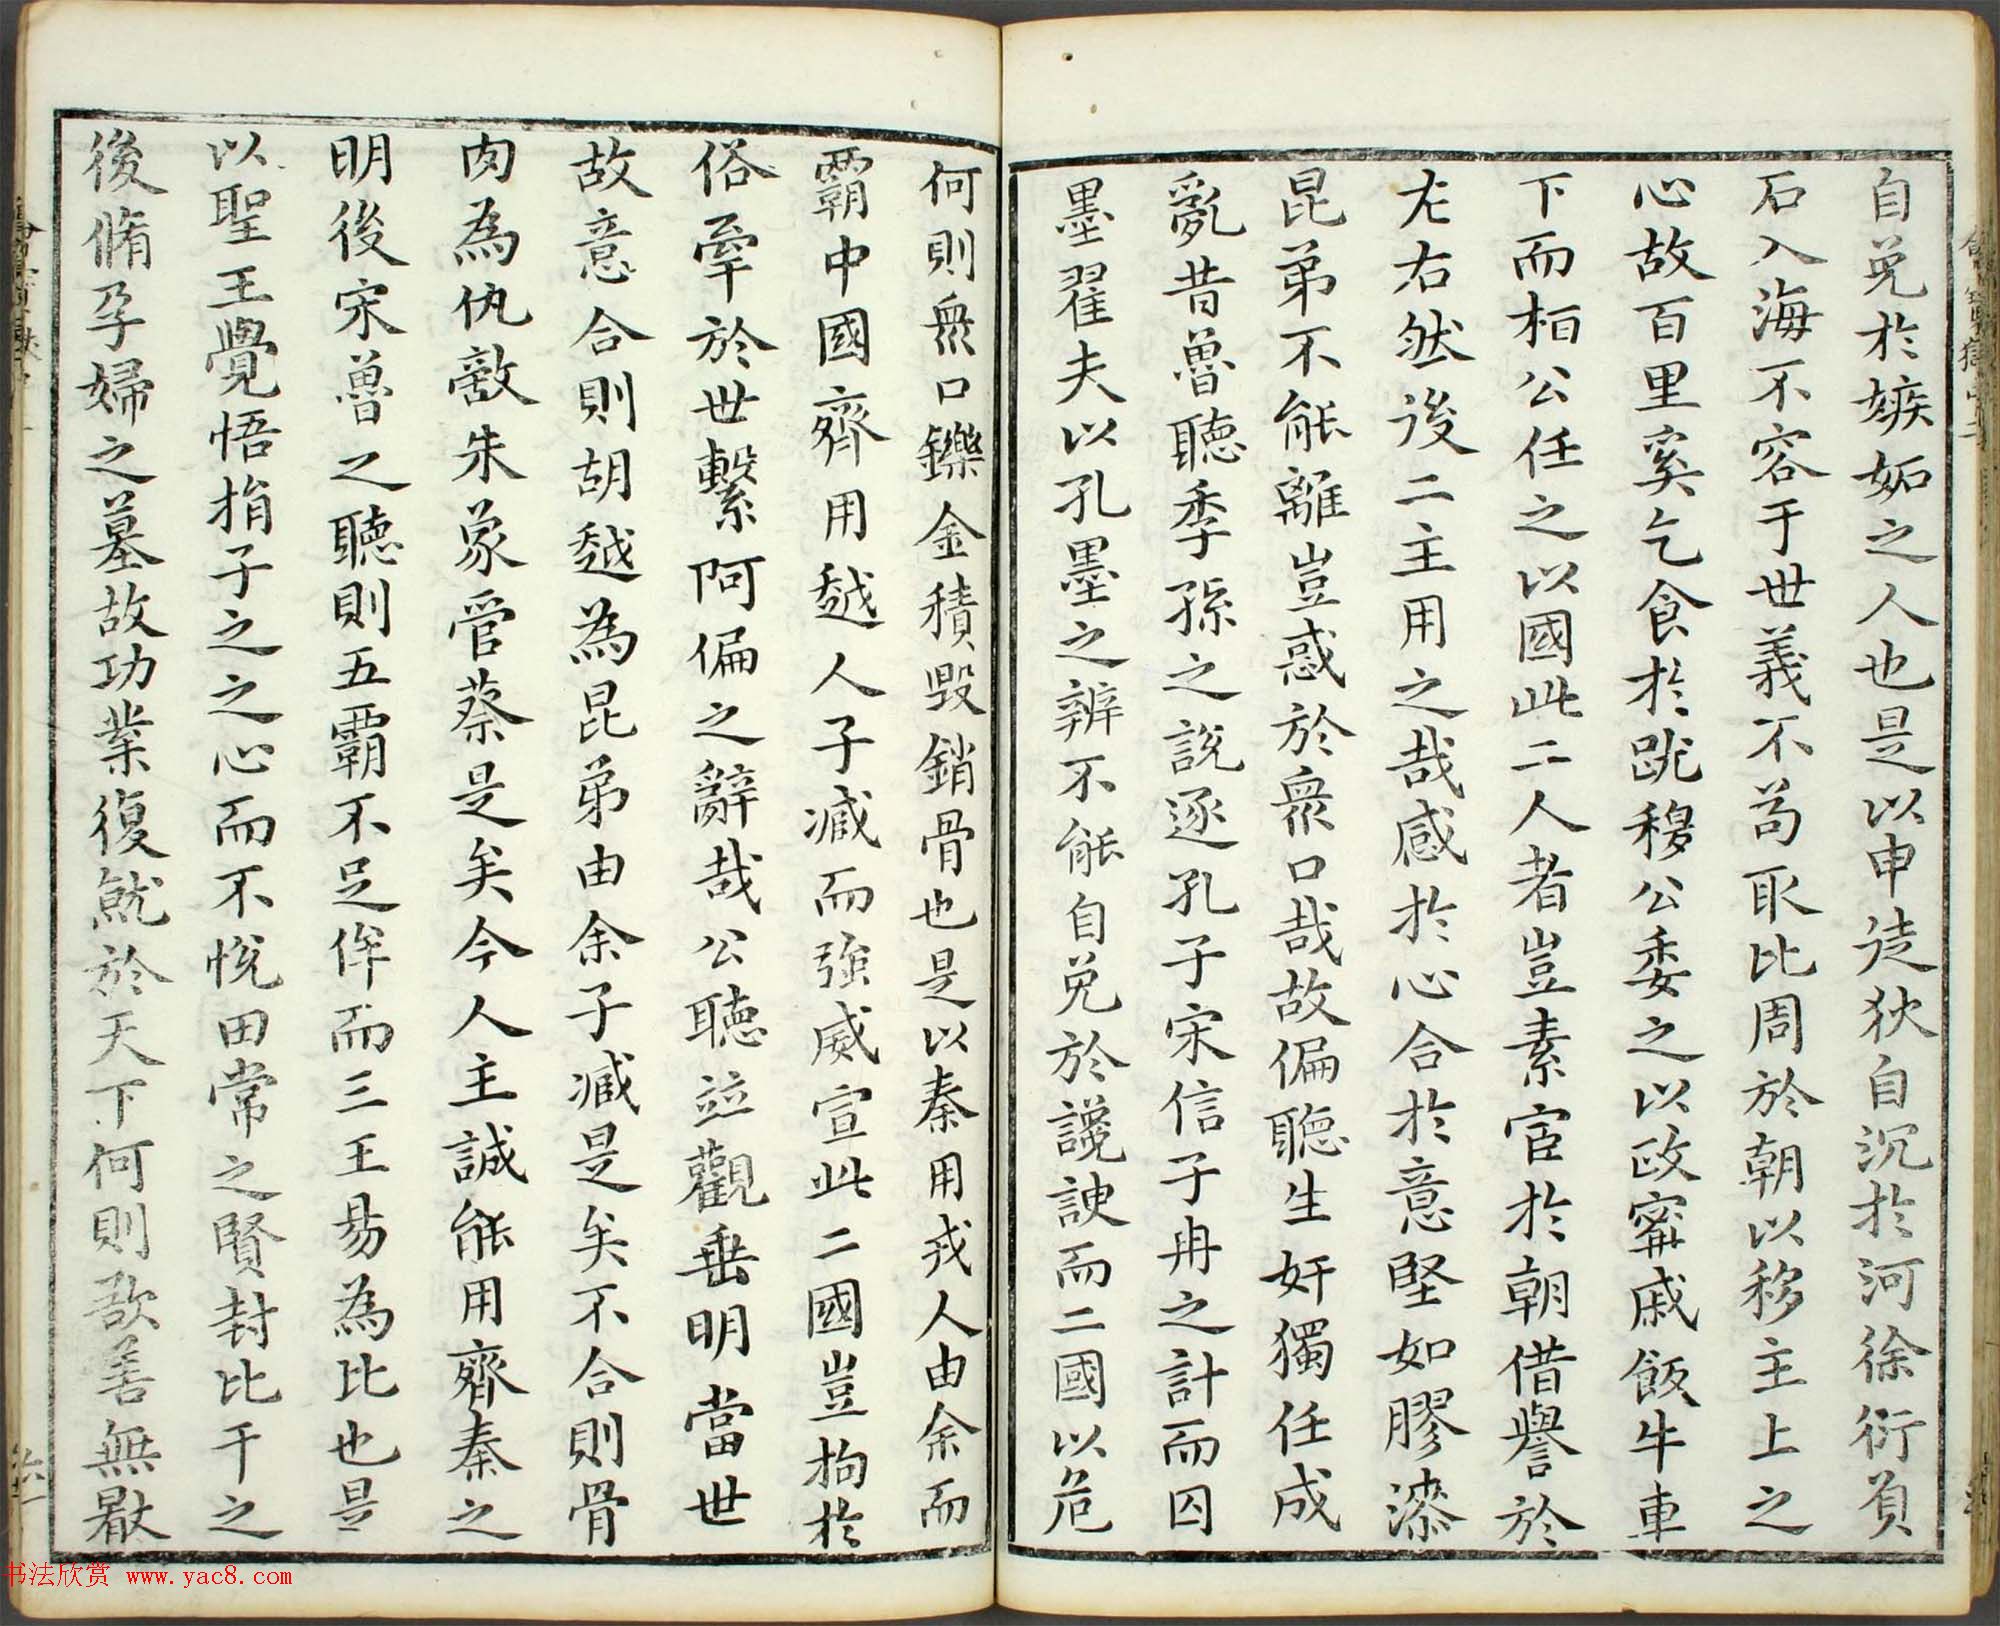 自免於嫉妬之人也是以申徒狄自沉於河徐衍負
石入海不容于世義不苟取比周於朝以移主上之
心故百里奚乞食於路穆公委之以政甯戚飯牛車
下而桓公任之以國此二人者豈素宦於朝借譽於
左右然後二主用之哉感於心合於意堅如膠漆
昆弟不能離豈惑於衆口哉故偏聽生奸獨任成
亂昔魯聽季孫之說逐孔子宋信子冉之計而囚
墨翟夫以孔墨之辨不能自免於讒諛而二國以危
何則衆口鑠金積毀銷骨也是以秦用戎人由余而
霸中國齊用越人子臧而強威宣此二國豈拘於
俗牽於世繫阿偏之辭哉公聽竝觀垂明當世
故意合則胡越為昆弟由余子臧是矣不合則骨
肉為仇敵朱象管蔡是矣今人主誠能用齊秦之
明後宋魯之聽則五霸不足侔而三王易為比也是
以聖王覺悟捐子之之心而不悅田常之賢封比干之
後脩孕婦之墓故功業復就於天下何則欲善無厭
书法欣赏 www.yac8.com